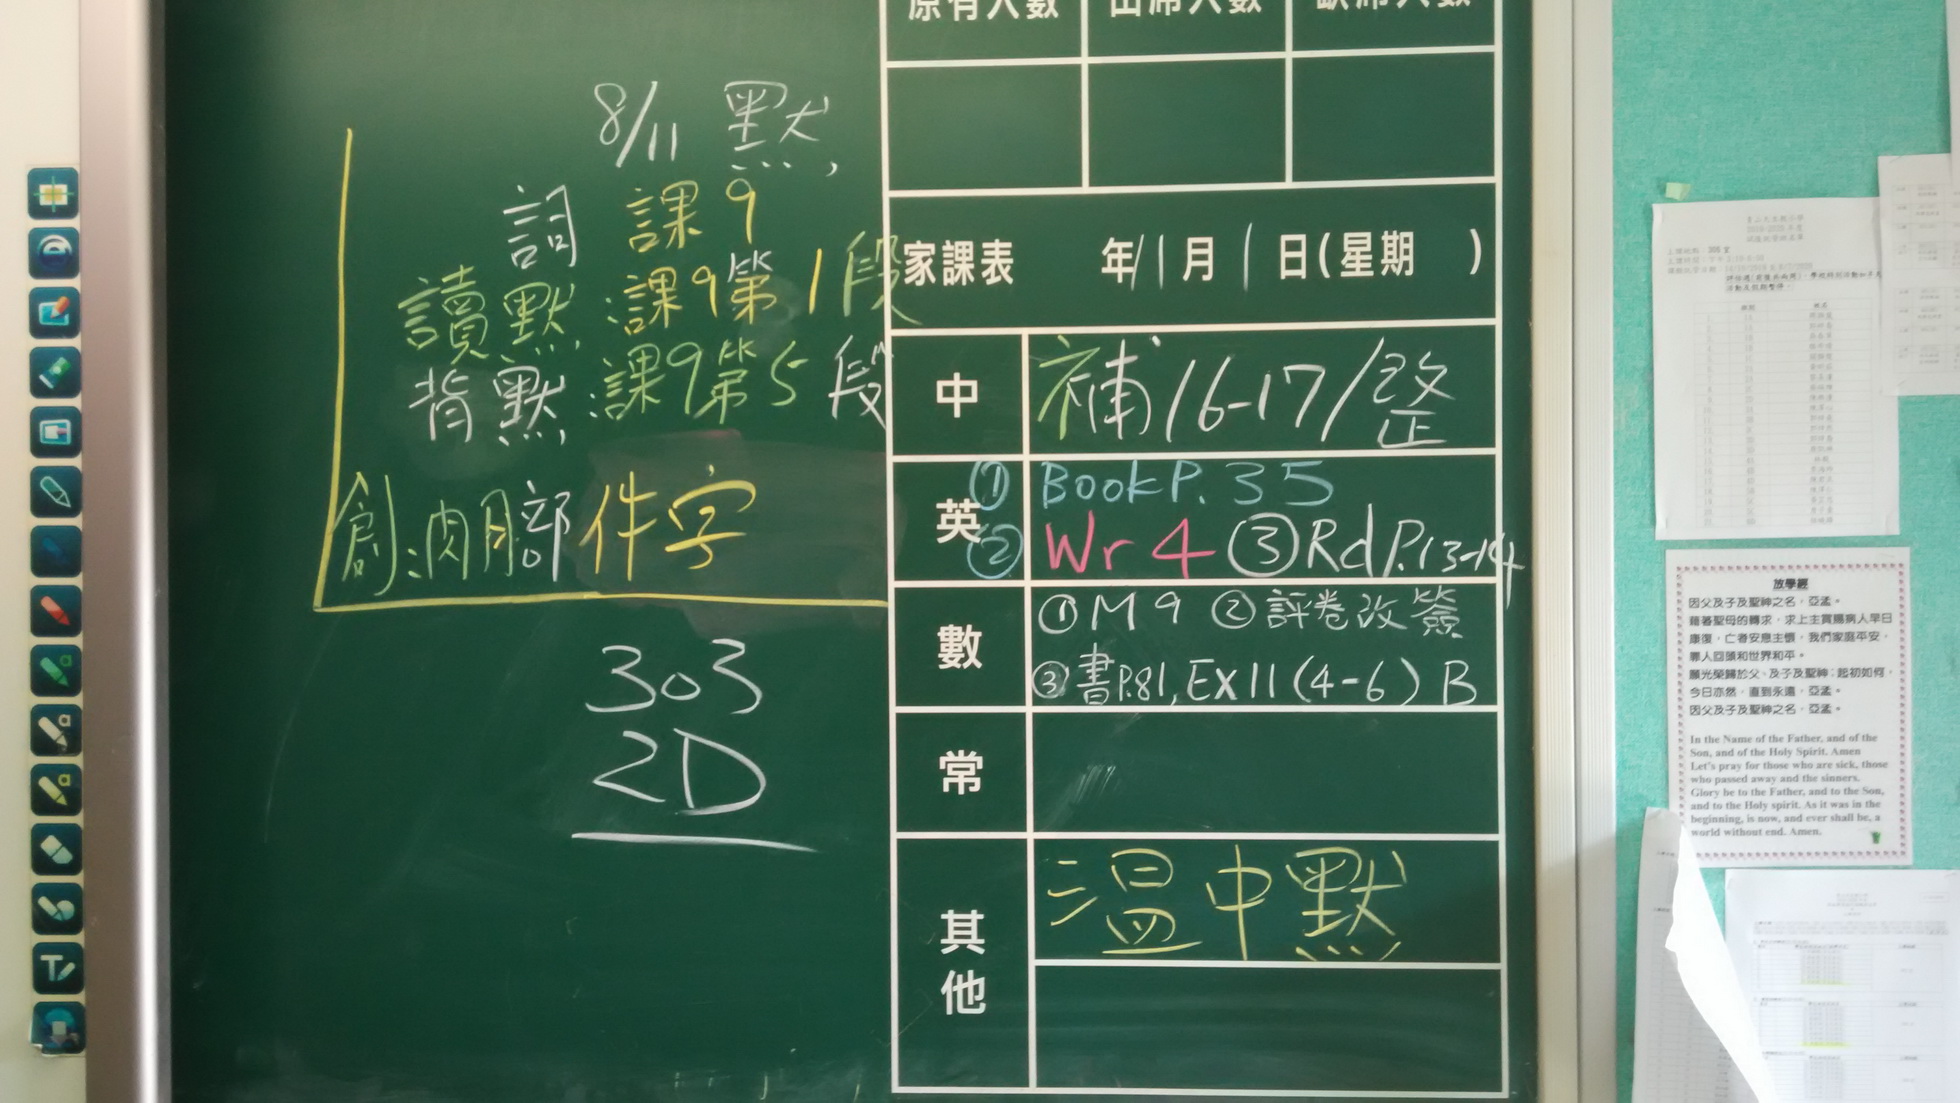 8/11 默
詞 課9
讀默:課9第1段
背默:課9第5段
創:肉月部件字
303
2D
原有人數 出席人數 缺席人數
家課表 年11月1日(星期 )
中 補16-17/整
英 ① Book P. 35
② Wr 4 ③ Rd P.13-14
數 ① M 9 ② 評卷改簽
③ 書P.81, EX11(4-6) B
常
其他 溫中默
放學經
因父及子及聖神之名，亞孟。
藉著聖母的轉求，求上主賞賜病人早日
康復，亡者安息主懷，我們家庭平安，
罪人回頭和世界和平。
願光榮歸於父、及子及聖神；起初如何，
今日亦然，直到永遠，亞孟。
因父及子及聖神之名，亞孟。
In the Name of the Father, and of the
Son, and of the Holy Spirit. Amen
Let's pray for those who are sick, those
who passed away and the sinners.
Glory be to the Father, and to the Son,
and to the Holy spirit. As it was in the
beginning, is now, and ever shall be, a
world without end. Amen.